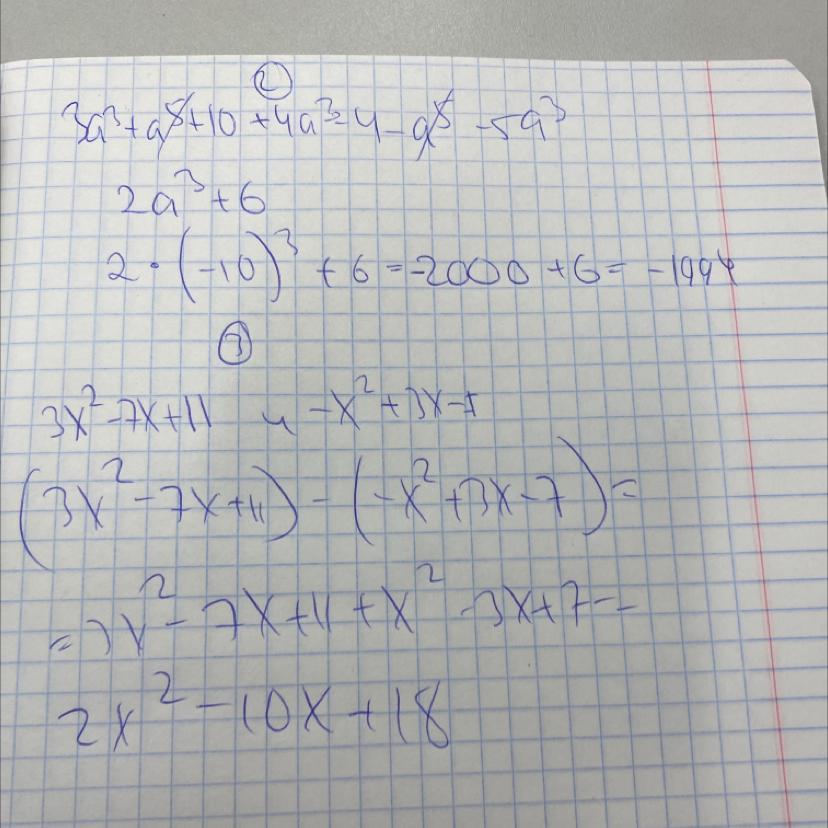 ②
3a³+a⁸+10+4a³-4-a⁸-5a³
2a³+6
2·(-10)³+6=-2000+6=-1994
③
3x²-7x+11 и -x²+3x-7
(3x²-7x+11)-(-x²+3x-7)=
=3x²-7x+11+x²-3x+7=
2x²-10x+18